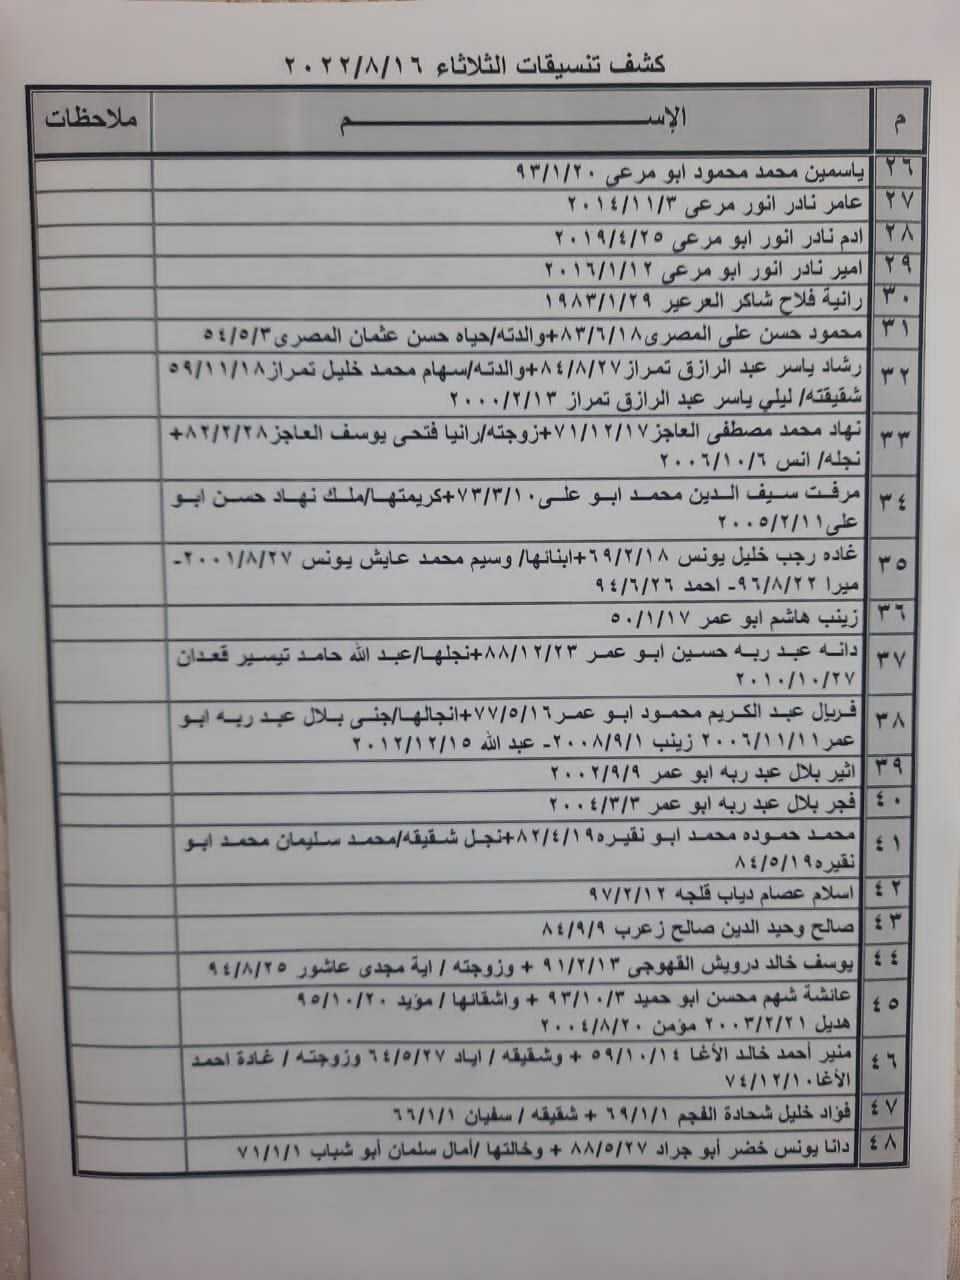 كشف تنسيقات الثلاثاء ٢٠٢٢/٨/١٦
م الإســـم ملاحظات
٢٦ ياسمين محمد محمود ابو مرعي ٩٣/١/٢٠
٢٧ عامر نادر انور مرعي ٢٠١٤/١١/٣
٢٨ ادم نادر انور ابو مرعي ٢٠١٩/٤/٢٥
٢٩ امير نادر انور ابو مرعي ٢٠١٦/١/١٢
٣٠ رانية فلاح شاكر العرعير ١٩٨٣/١/٢٩
٣١ محمود حسن على المصرى٨٣/٦/١٨+والدته/حياه حسن عثمان المصرى٥٤/٥/٣
٣٢ رشاد ياسر عبد الرازق تمراز٨٤/٨/٢٧+والدته/سهام محمد خليل تمراز٥٩/١١/١٨
شقيقته/ ليلي ياسر عبد الرازق تمراز ٢٠٠٠/٢/١٣
٣٣ نهاد محمد مصطفى العاجز٧١/١٢/١٧+زوجته/رانيا فتحى يوسف العاجز٨٢/٢/٢٨+
نجله/ انس ٢٠٠٦/١٠/٦
٣٤ مرفت سيف الدين محمد ابو على٧٣/٣/١٠+كريمتها/ملك نهاد حسن ابو
على٢٠٠٥/٢/١١
٣٥ غاده رجب خليل يونس ٦٩/٢/١٨+ابنائها/ وسيم محمد عايش يونس ٢٠٠١/٨/٢٧-
ميرا ٩٦/٨/٢٢- احمد ٩٤/٦/٢٦
٣٦ زينب هاشم ابو عمر ٥٠/١/١٧
٣٧ دانه عبد ربه حسين ابو عمر ٨٨/١٢/٢٣+نجلها/عبد الله حامد تيسير قعدان
٢٠١٠/١٠/٢٧
٣٨ فريال عبد الكريم محمود ابو عمر٧٧/٥/١٦+انجالها/جنى بلال عبد ربه ابو
عمر٢٠٠٦/١١/١١ زينب ٢٠٠٨/٩/١- عبد الله ٢٠١٢/١٢/١٥
٣٩ اثير بلال عبد ربه ابو عمر ٢٠٠٢/٩/٩
٤٠ فجر بلال عبد ربه ابو عمر ٢٠٠٤/٣/٣
٤١ محمد حموده محمد ابو نقيره٨٢/٤/١٩+نجل شقيقه/محمد سليمان محمد ابو
نقيره٨٤/٥/١٩
٤٢ اسلام عصام دياب قلجه ٩٧/٢/١٢
٤٣ صالح وحيد الدين صالح زعرب ٨٤/٩/٩
٤٤ يوسف خالد درويش القهوجي ٩١/٢/١٣ + وزوجته / اية مجدى عاشور ٩٤/٨/٢٥
٤٥ عائشة شهم محسن ابو حميد ٩٣/١٠/٣ + واشقائها / مؤيد ٩٥/١٠/٢٠
هديل ٢٠٠٣/٢/٢١ مؤمن ٢٠٠٤/٨/٢٠
٤٦ منير أحمد خالد الأغا ٥٩/١٠/١٤ + وشقيقه / اياد ٦٤/٥/٢٧ وزوجته / غادة احمد
الأغا٧٤/١٢/١٠
٤٧ فؤاد خليل شحادة الفجم ٦٩/١/١ + شقيقه / سفيان ٦٦/١/١
٤٨ دانا يونس خضر أبو جراد ٨٨/٥/٢٧ + وخالتها /أمال سلمان أبو شباب ٧١/١/١